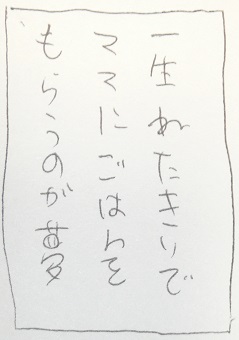 一生ねたきりで
ママにごはんを
もらうのが夢